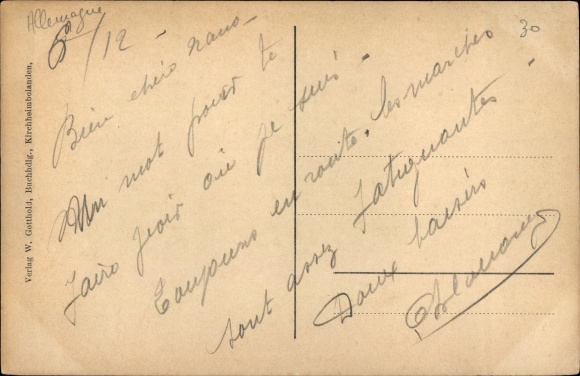 Allemagne
6/12 -
30
Bien chère nano-
Un mot pour te
faire voir où je suis -
Toujours en route, les marches
sont assez fatiguantes -
Doux baisers
Verlag W. Gotthold, Buchhdlg., Kirchheimbolanden.